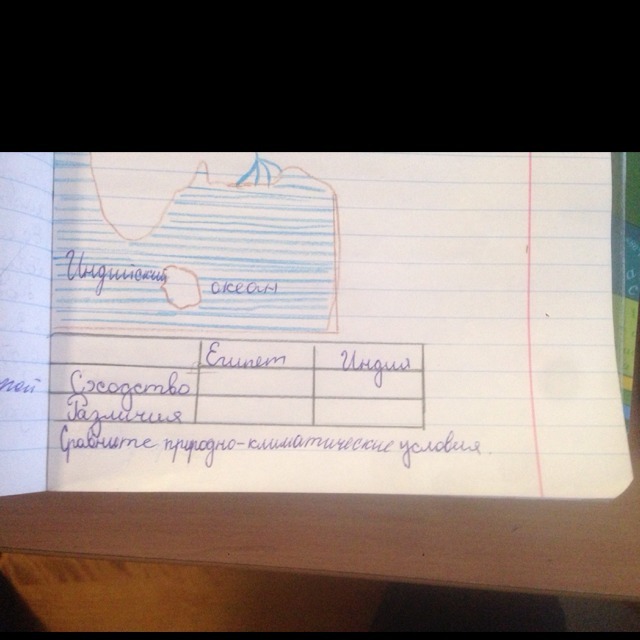 Индийский океан
Египет Индия
Сходство
Различия
Сравните природно-климатические условия.